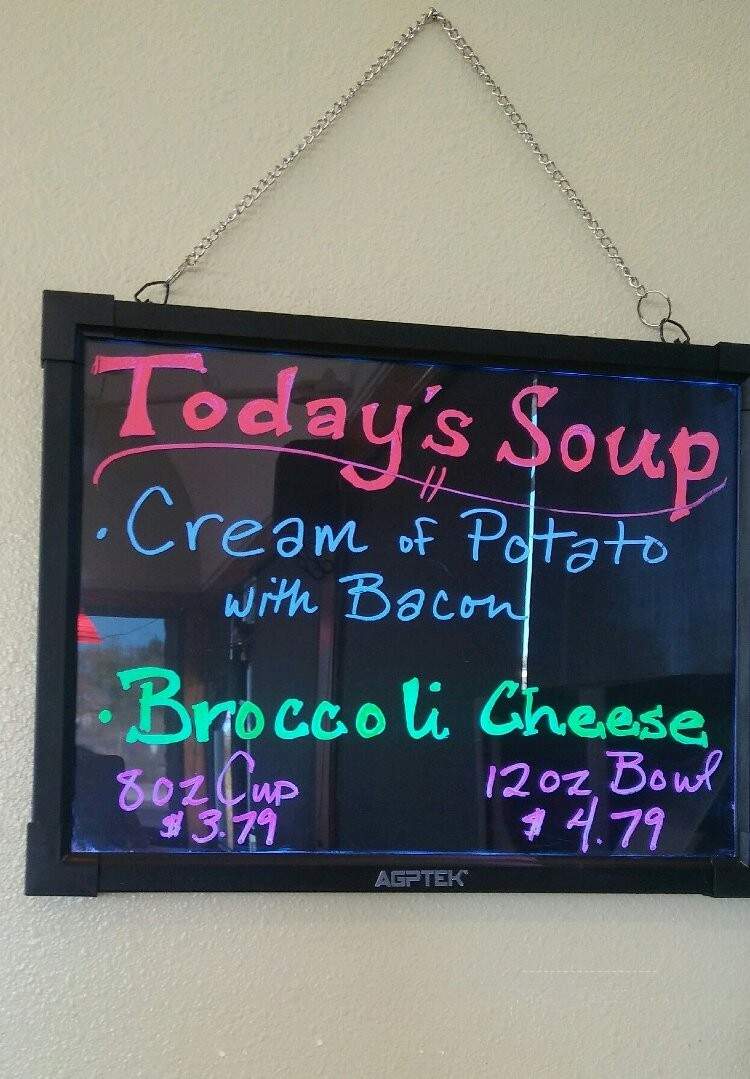 Today's Soup
· Cream of Potato
with Bacon
· Broccoli Cheese
8oz Cup 12oz Bowl
$3.79 $4.79
AGPTEK